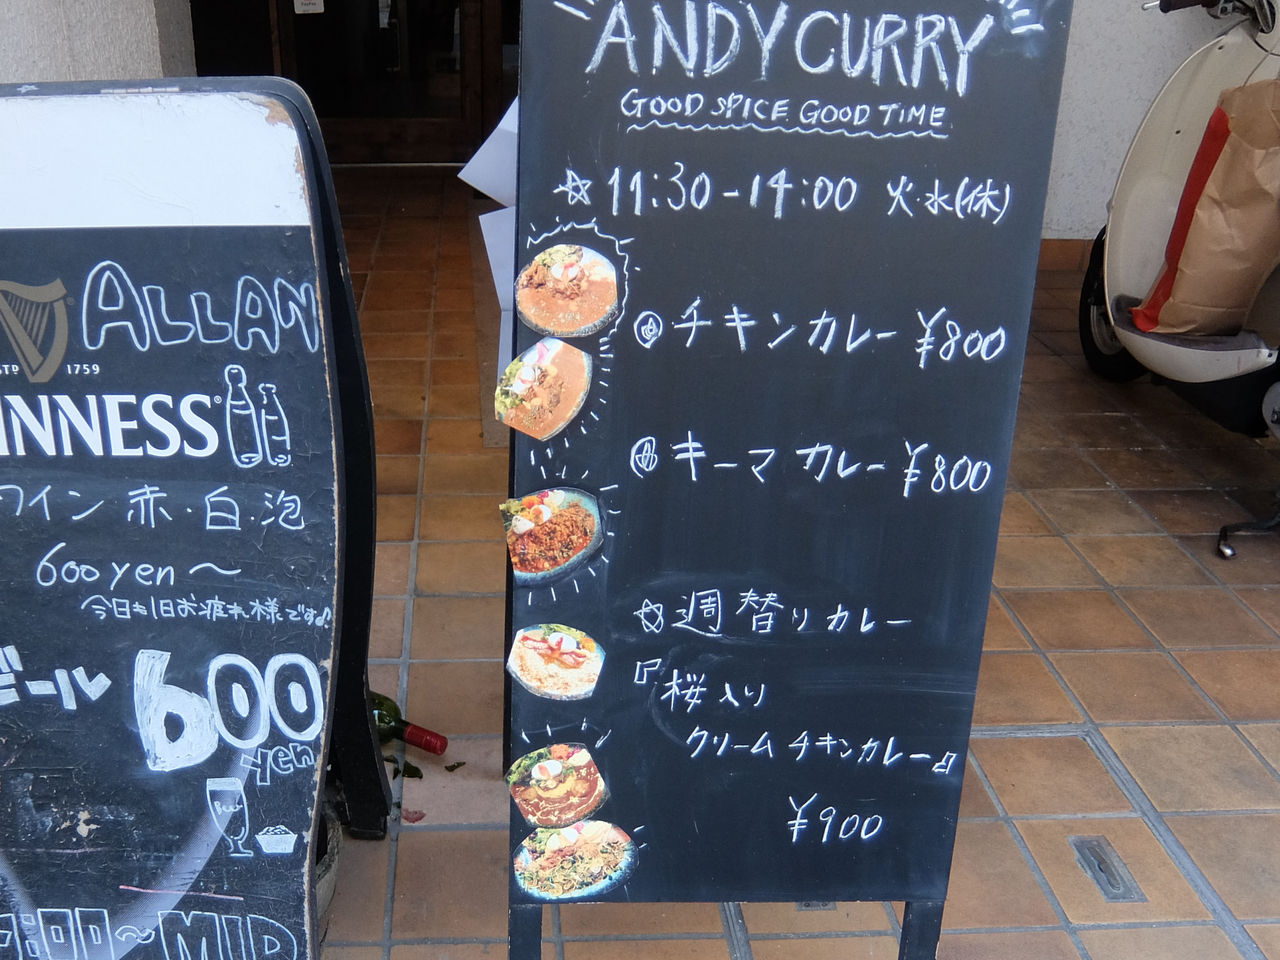 ALLAN
1759
GUINNESS
ワイン 赤・白・泡
600yen〜
今日も1日お疲れ様です♪
ビール 600
yen
Beer
〜MID
ANDYCURRY
GOOD SPICE GOOD TIME
☆11:30-14:00 火・水(休)
チキンカレー ¥800
キーマカレー ¥800
☆週替りカレー
『桜入り
クリームチキンカレー』
¥900
PayPay